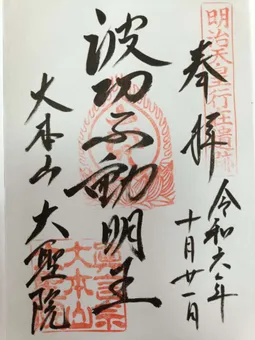 奉拝
令和六年
十月廿一日
波切不動明王
大本山大聖院
明治天皇行在
大本山